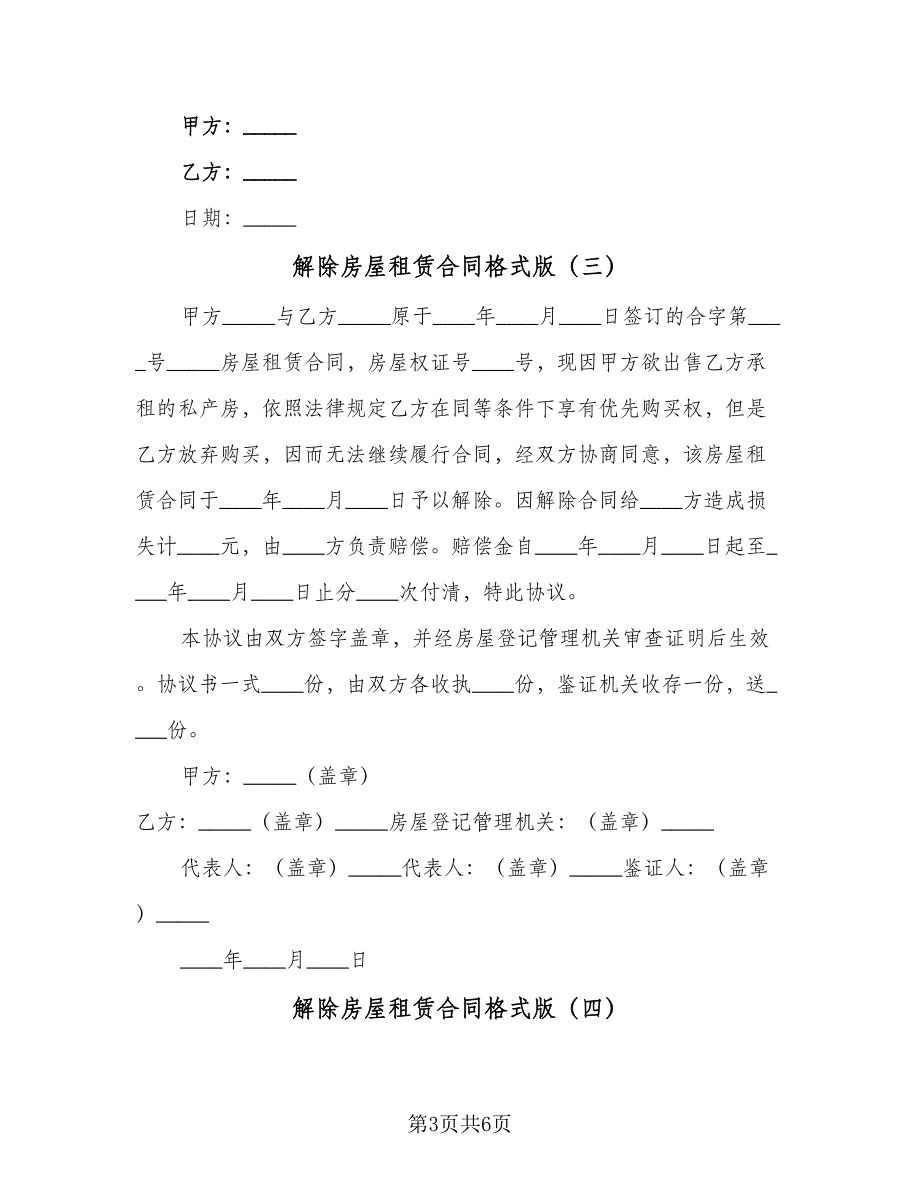 甲方：_____
乙方：_____
日期：_____
解除房屋租赁合同格式版（三）
甲方_____与乙方_____原于____年____月____日签订的合字第___
_号_____房屋租赁合同，房屋权证号____号，现因甲方欲出售乙方承
租的私产房，依照法律规定乙方在同等条件下享有优先购买权，但是
乙方放弃购买，因而无法继续履行合同，经双方协商同意，该房屋租
赁合同于____年____月____日予以解除。因解除合同给____方造成损
失计____元，由____方负责赔偿。赔偿金自____年____月____日起至_
___年____月____日止分____次付清，特此协议。
本协议由双方签字盖章，并经房屋登记管理机关审查证明后生效
。协议书一式____份，由双方各收执____份，鉴证机关收存一份，送_
___份。
甲方：_____（盖章）
乙方：_____（盖章）_____房屋登记管理机关：（盖章）_____
代表人：（盖章）_____代表人：（盖章）_____鉴证人：（盖章
）_____
____年____月____日
解除房屋租赁合同格式版（四）
第3页共6页